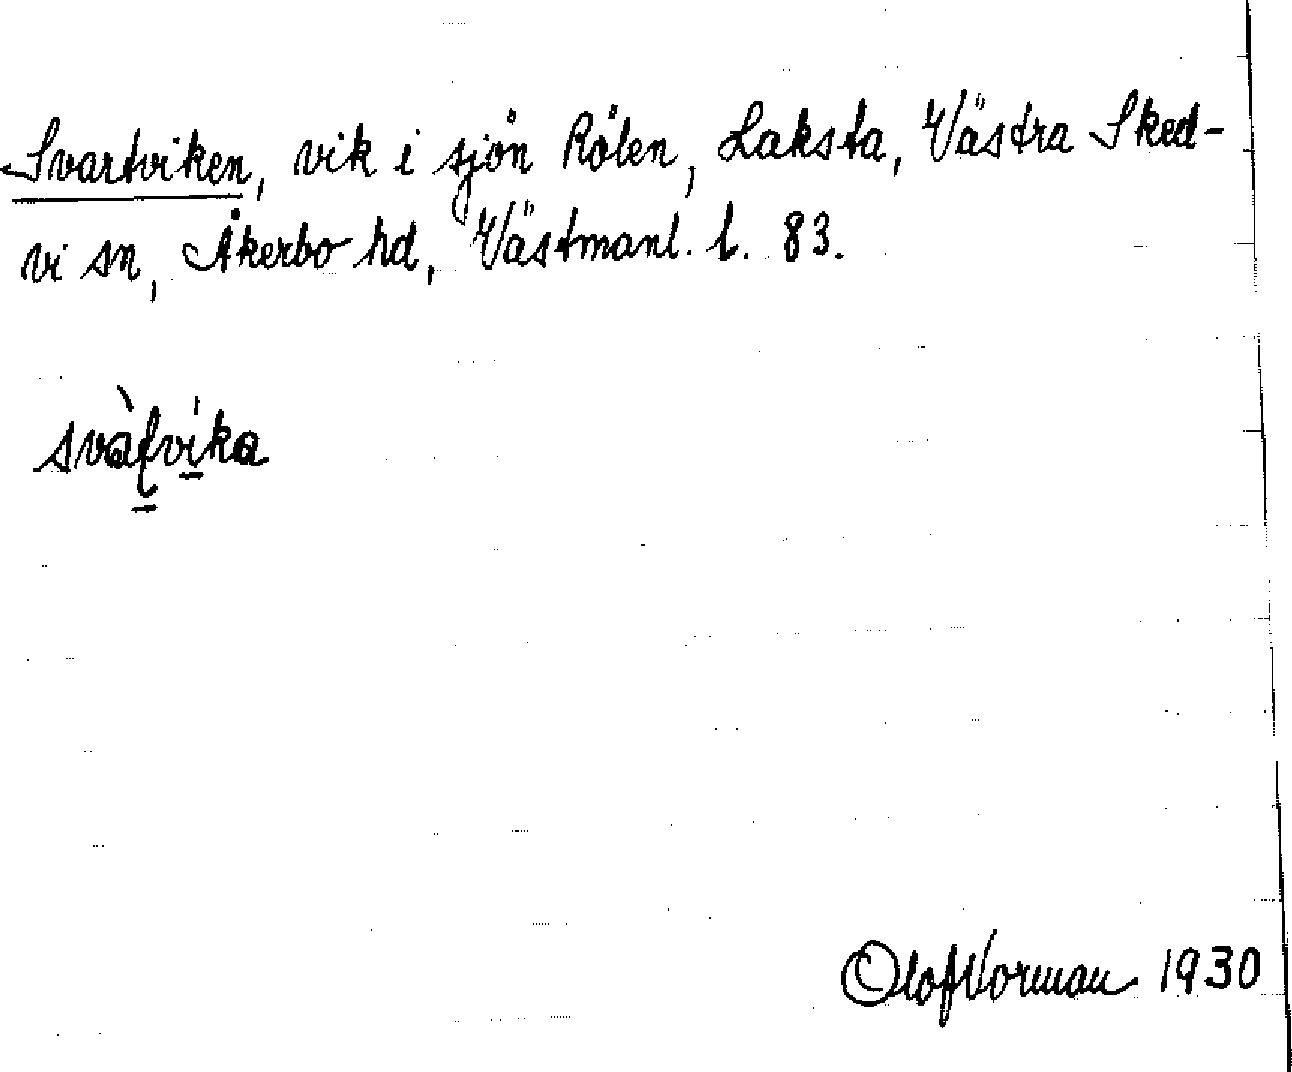 Svartviken, vik i sjön Rölen, Laksta, Västra Sked-
vi sn, Åkerbo hd, Västmanl. l. 83.
Olof Norman 1930